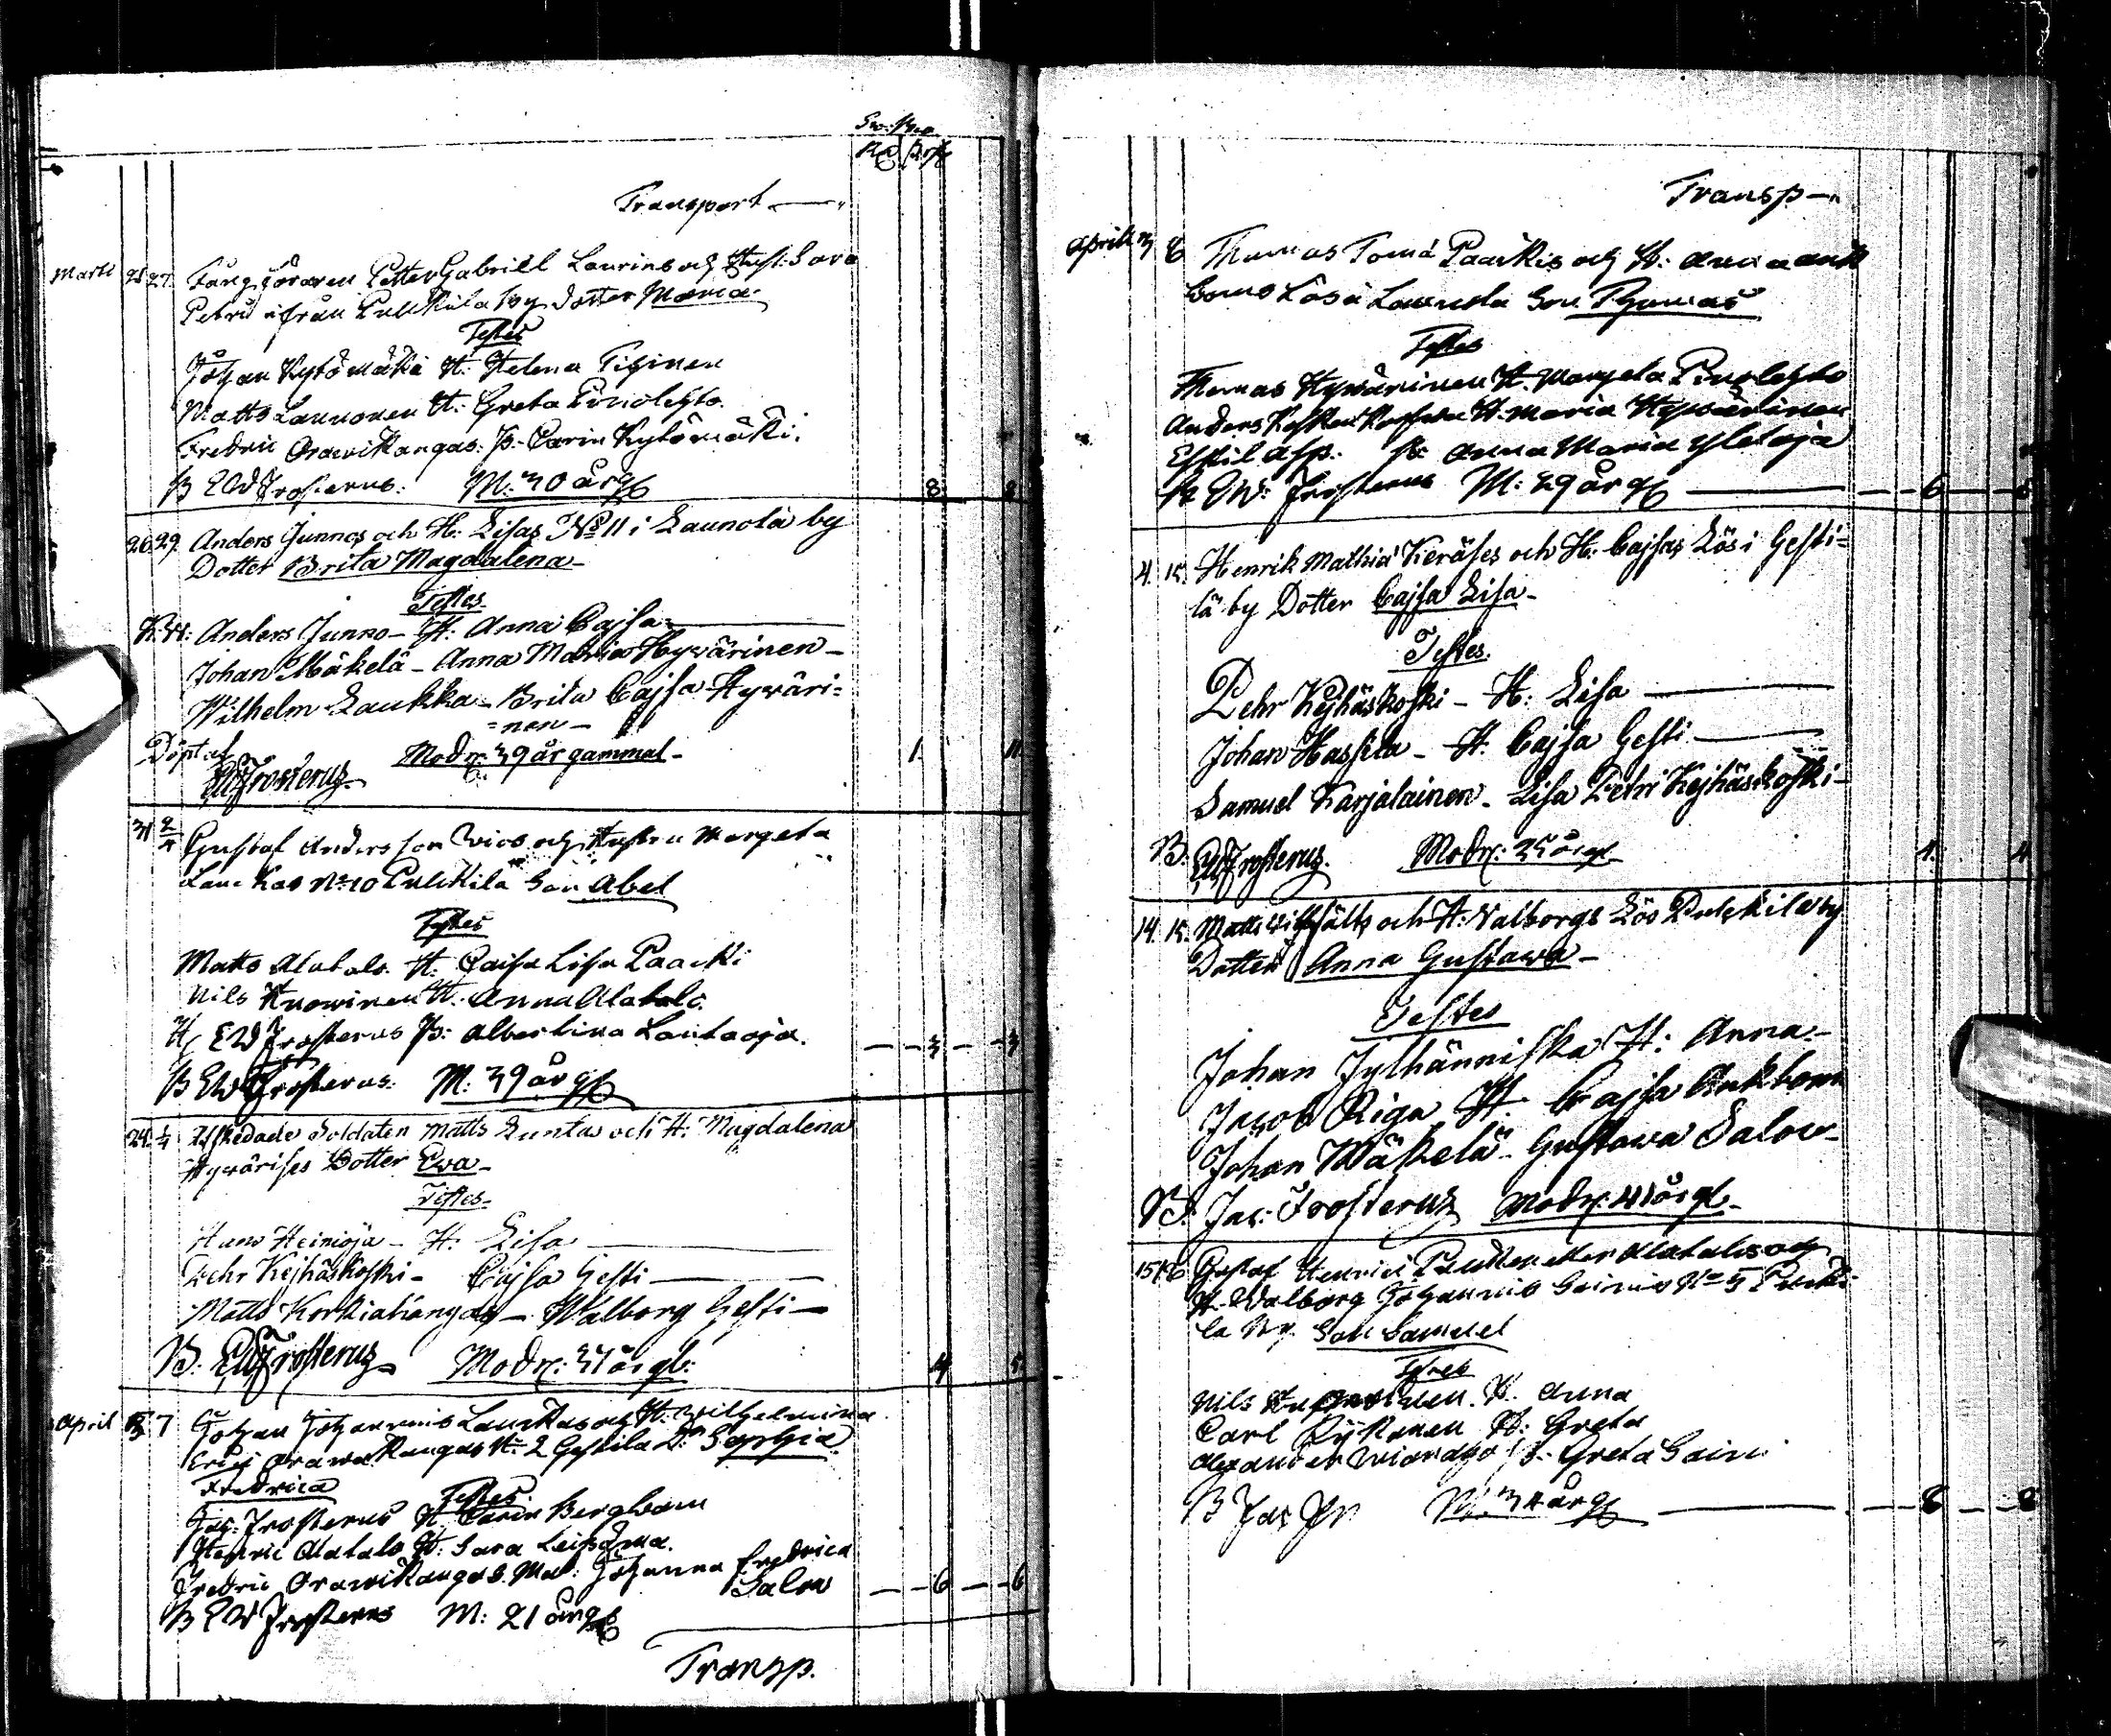 Sw: Bco
Rd ß rst
Transport —
Martii 25 27. Fångföraren Petter Gabriell Laurins och Hust: Sara
Petri ifrån Pulkkila by dotter Maria.
Testes
Johan Kytömäki H: Helena
Matts Launonen H: Greta Pirolehto.
Fredric Orawikangas. P: Carin Kytömäki.
B EW Frosterus: M: 30 år gl 8 8
26. 29. Anders Junnos och H: Lisas No 11 i Launola by
Dotter Brita Magdalena –
Testes.
Anders Junno – H: Anna Cajsa
Johan Mäkelä – Anna Maria Hywärinen –
Wilhelm Laukka – Brita Cajsa Hywäri=
=nen –
Döpt af Modr: 39 år gammal – 1. 11
EW Frosterus
31 2/4 Gustaf Andersson och Hustru Margeta
No 10 Pulkkila Son Abel
Testes
Matts Alatalo. H: Caisa Lisa Paacki
Nils H: Anna Alatalo.
H EW Frosterus P: Albertina Lautaoja. 3 3
B EW Frosterus: M: 39 år gl
24. 1/4 Afskedade Soldaten Matts Lunta och H: Magdalena
Hywärises Dotter Ewa –
Testes.
Hans Heinioja – H: Lisa
Pehr Kejhäskoski – Cajsa Gesti
Matts Korkiakangas – Walborg Gesti –
B. EW Frosterus Modr: 31 år gl: 4 5
April 7 Johan Johannis Laukkas och H: Wilhelmina
Erici Orawakangas No 2 Gestila D: Sophia
Fredrica Testes
Jac: Frosterus H: Carin Bergbom
Henric Alatalo H: Sara
Fredric Orawikangas. Mad: Johanna Fredrica
Salow 6 6
B EW Frosterus M: 21 år gl
Transp.
Transp –
April 3 6 Thomas Tomæ Paackis och H: Anna
Lös i Launola Son Thomas
Testes
Thomas Hywärinen H. Margeta Pirolehto
Anders H. Maria Hywärinen
Eskil Asp. P: Anna Maria Yletoja
B EW: Frosterus M: 29 år gl 6 6
4. 15. Henrik Mathiæ Keräses och H: Cajsas Lös i Gesti=
lä by Dotter Cajsa Lisa –
Testes.
Pehr Kejhäskoski – H: Lisa
Johan Hassila – H: Cajsa Gesti
Samuel Karjalainen – Lisa Pehr Kejhäskoski –
B: EW Frosterus. Modr: 25 år gl 4. 4
14. 15. Matts och H: Valborgs Lös Pulkkila by
Dotter Anna Gustawa –
Testes
Johan Jylhänniska H: Anna –
Jacob Riga H: Cajsa Ankbom
Johan Mäkelä – Gustawa Salow –
B: Jac: Frosterus Modr: 41 år gl –
15 16 Gustaf Henrici eller Alatalos och
H. Walborg Johannis No 5 Pulkki
la By. Son Samuel
Testes
Nils H. Anna
Carl Pyykönen H: Greta
Alexander P: Greta
B Jac Fr M: 34 år gl 8 8